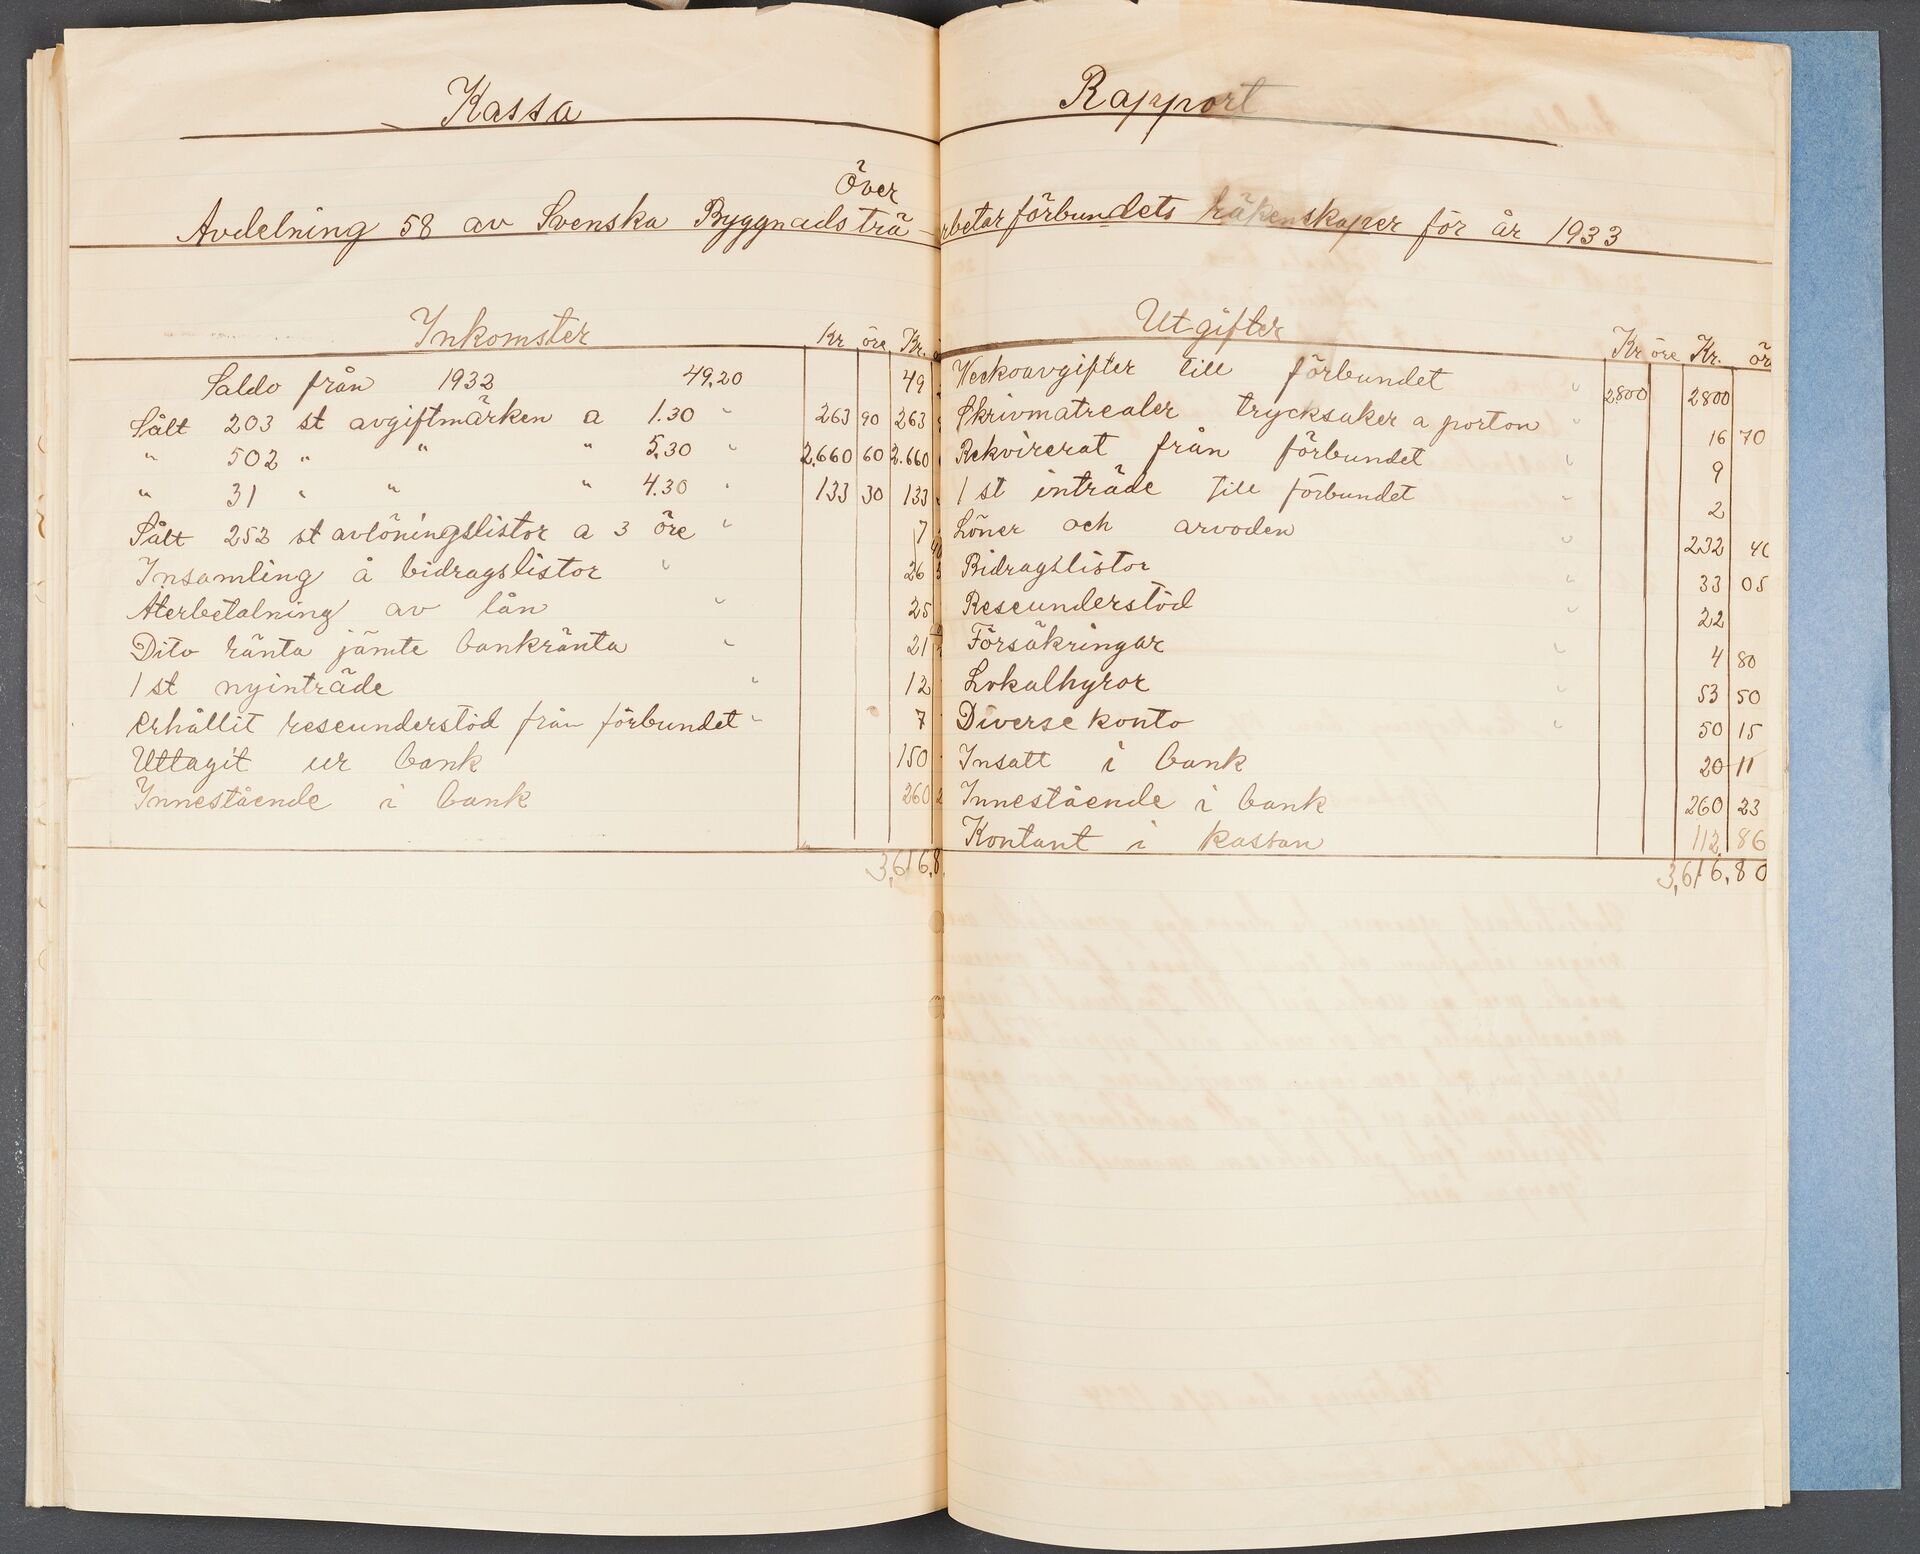 Kassa
Över
Avdelning 58 av Svenska Byggnadsträ-
Inkomster Kr öre Kr.
Saldo från 1932 49,20 49
Sålt 203 st avgiftmärken a 1.30 " 263 90 263
" 502 " " " 5,30 " 2.660 60 2.660
" 31 " " " 4.30 " 133 30 133
Sålt 252 st avlöningslistor a 3 öre " 7
Insamling å bidragslistor " 26
Återbetalning av lån " 25
Dito ränta jämte bankränta " 21
1 st nyinträde " 12
erhållit reseunderstöd från förbundet " 7
Uttagit ur bank 150
Innestående i bank 260
3,616,8
Rapport
rbetarförbundets räkenskaper för år 1933
Utgifter Kr öre Kr. ör
Veckoavgifter till förbundet " 2800 2800
Skrivmatrealer trycksaker a porton " 16 70
Rekvirerat från förbundet " 9
1 st inträde till förbundet " 2
Löner och arvoden " 232 40
Bidragslistor " 33 05
Reseunderstöd " 22
Försäkringar " 4 80
Lokalhyror " 53 50
Diverse konto " 50 15
Insatt i bank 20 11
Innestående i bank 260 23
Kontant i kassan 112 86
3,616,80